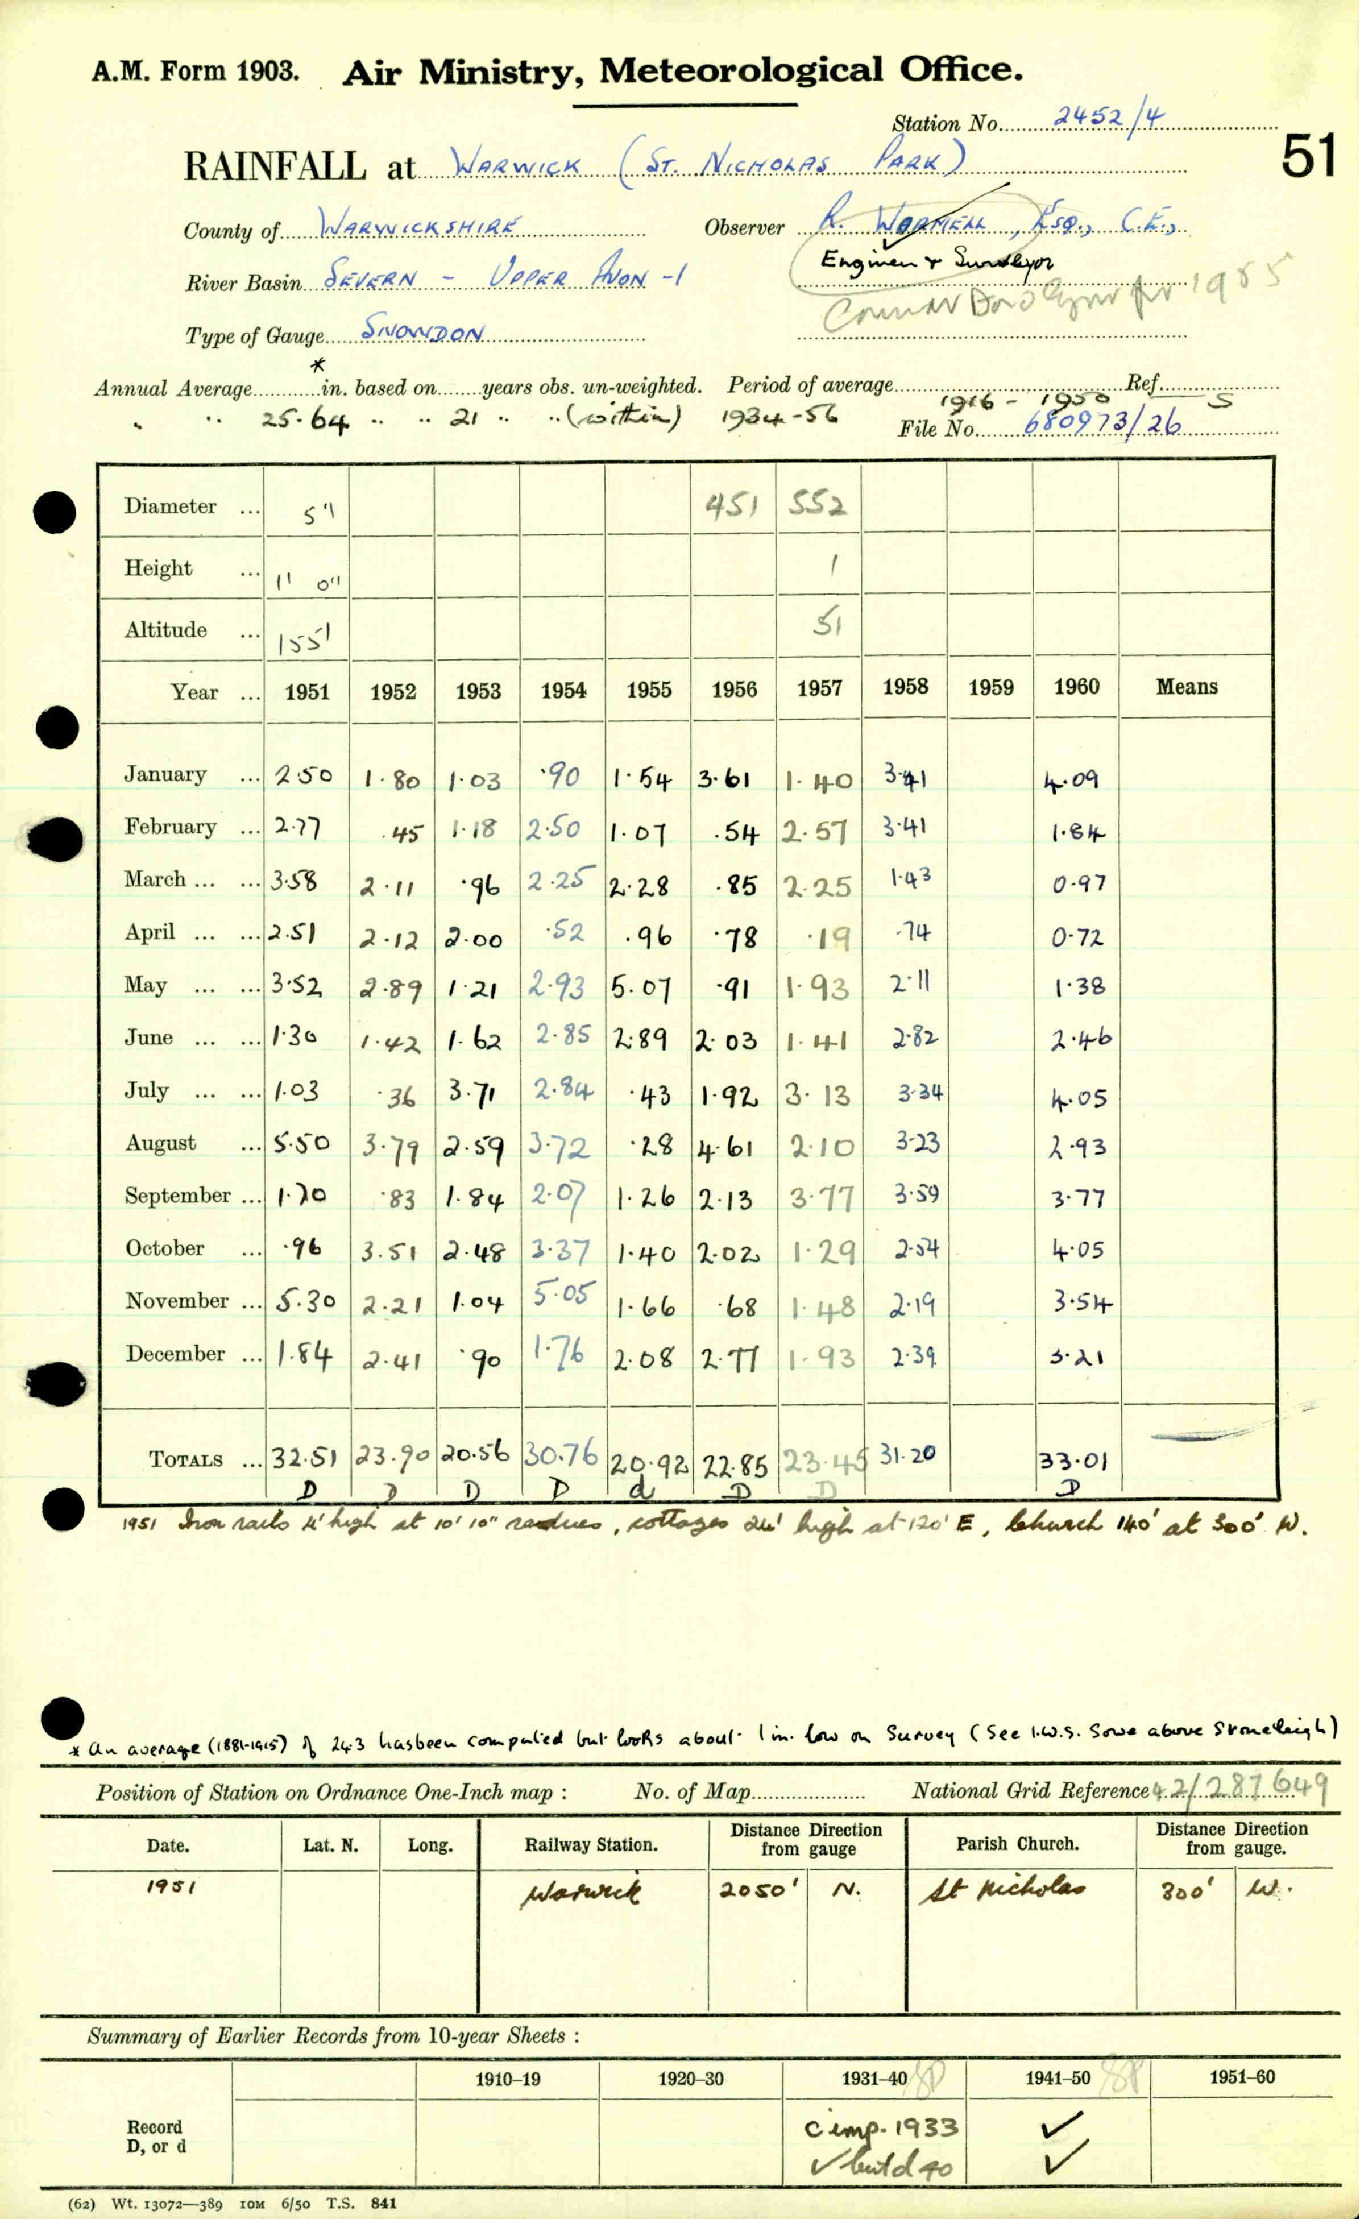 A.M. Form 1903. Air Ministry, Meteorological Office.
Station No. 2452/4
51
RAINFALL at WARWICK (ST. NICHOLAS PARK)
County of WARWICKSHIRE Observer R. WORMELL, ESQ., C.E.,
Engineer & Surveyor
River Basin SEVERN - UPPER AVON -1
for 1955
Type of Gauge SNOWDON
Annual Average * in. based on years obs. un-weighted. Period of average 1916 - 1950 Ref. S
" " 25.64 " " 21 " " (within) 1934-56 File No. 680973/26
Diameter ... 5" 451 552
Height ... 1' 0" 1
Altitude ... 155' 51
Year ... 1951 1952 1953 1954 1955 1956 1957 1958 1959 1960 Means
January ... 2.50 1.80 1.03 .90 1.54 3.61 1.40 3.41 4.09
February ... 2.77 .45 1.18 2.50 1.07 .54 2.57 3.41 1.84
March ... ... 3.58 2.11 .96 2.25 2.28 .85 2.25 1.43 0.97
April ... ... 2.51 2.12 2.00 .52 .96 .78 .19 .74 0.72
May ... ... 3.52 2.89 1.21 2.93 5.07 .91 1.93 2.11 1.38
June ... ... 1.30 1.42 1.62 2.85 2.89 2.03 1.41 2.82 2.46
July ... ... 1.03 .36 3.71 2.84 .43 1.92 3.13 3.34 4.05
August ... 5.50 3.79 2.59 3.72 .28 4.61 2.10 3.23 2.93
September ... 1.70 .83 1.84 2.07 1.26 2.13 3.77 3.59 3.77
October ... .96 3.51 2.48 3.37 1.40 2.02 1.29 2.54 4.05
November ... 5.30 2.21 1.04 5.05 1.66 .68 1.48 2.19 3.54
December ... 1.84 2.41 .90 1.76 2.08 2.77 1.93 2.39 3.21
TOTALS ... 32.51 23.90 20.56 30.76 20.92 22.85 23.45 31.20 33.01
D D D D d D D D
1951 Iron rails 4' high at 10' 10" radius, cottages 24' high at 120' E, Church 140' at 300' W.
* An average (1881-1915) of 24.3 has been computed but looks about 1 in. low on Survey (See I.W.S. Sowe above Stoneleigh)
Position of Station on Ordnance One-Inch map : No. of Map National Grid Reference 42/287649
Date. Lat. N. Long. Railway Station. Distance from Direction gauge Parish Church. Distance from Direction gauge.
1951 Warwick 2050' N. St Nicholas 300' W.
Summary of Earlier Records from 10-year Sheets :
1910–19 1920–30 1931–40 1941–50 1951–60
Record C imp. 1933 ✓
D, or d ✓ but d 40 ✓
(62) Wt. 13072—389 10M 6/50 T.S. 841